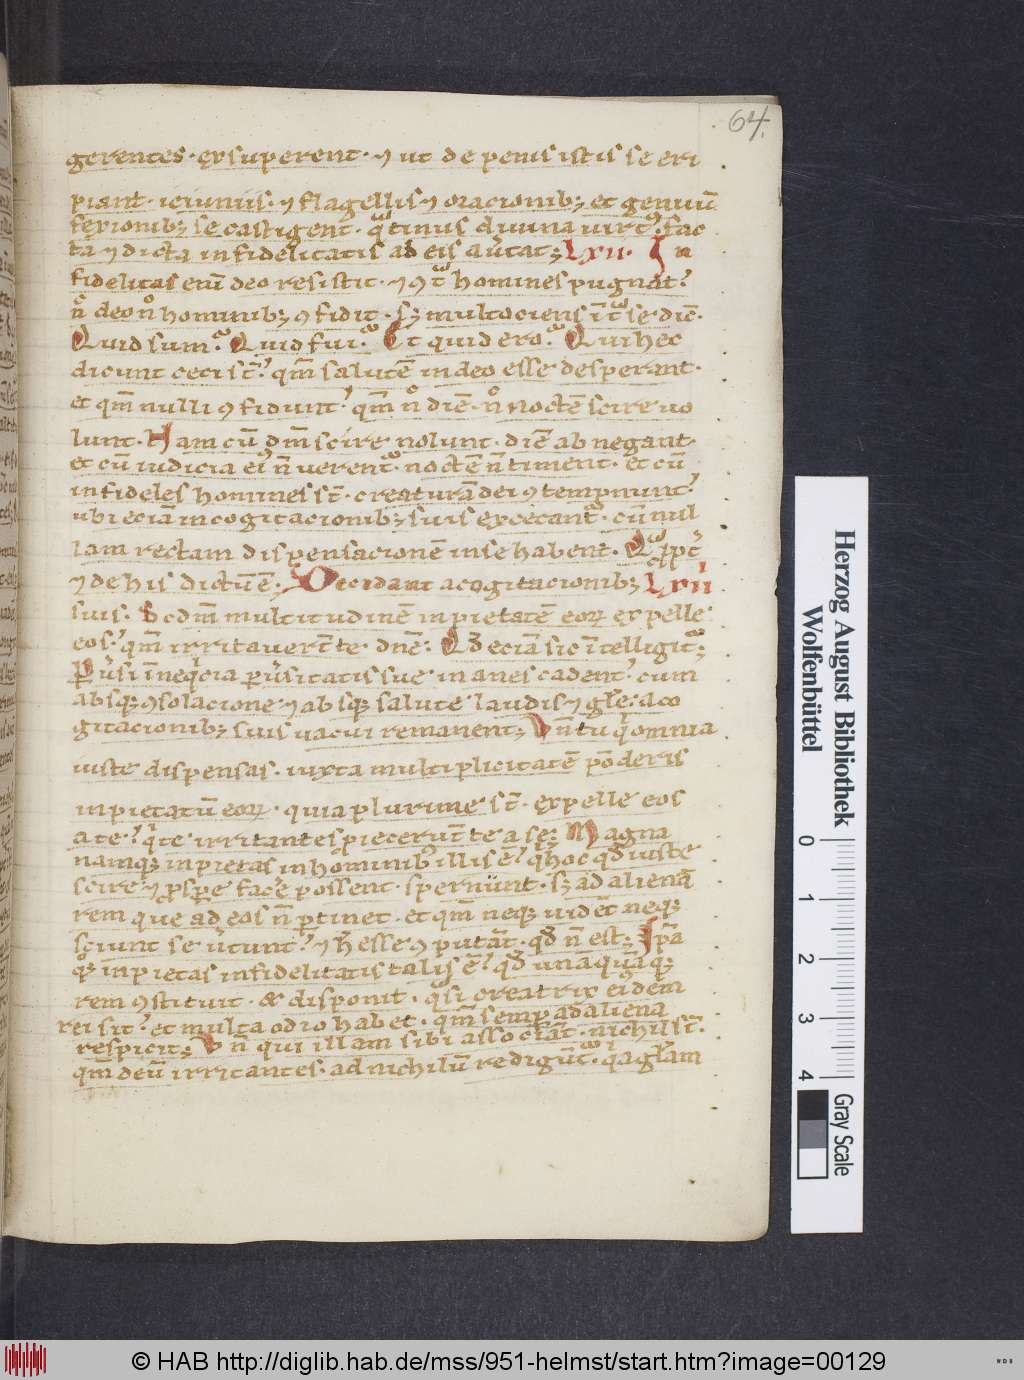 64.
gerentes · exsuperent · ⁊ ut de penis istis se eri
piant · ieiuniis · ⁊ flagellis ⁊ oracionib; et genuū
flexionib; se castigent · q̄tinus diuina uirt᷒ · fac
ta ⁊ dicta infidelitatis ab eis aūtat; Lxii · In
fidelitas enī deo resistit · ⁊ ꝯt͛ homines pugnat?
n̄ deo n̊ hominib; ꝯfidit · s; multociens īt͛ se diē ·
Quid sum? Quid fui? Et quid ero? Qui hec
dicunt ceci st̄? qm̄ salutē in deo esse desperant ·
et qm̄ nulli ꝯfidunt? qm̄ n̊ diē · n̊ noctē scire uo
lunt · Nam cū dm̄ scire nolunt · diē abnegant ·
et cū iudicia ei᷒ n̄ uerent᷑ · noctē n̄ timent · et cū
infideles homines st̄ · creaturā dei ꝯtempnunt?
ubi eciā in cogitacionib; suis excecant᷑ · cū nul
lam rectam dispensacionē in se habent · Q̄ ꝓpt͛
⁊ de his dictū ē; Decidant a cogitacionib; Lxiii
suis · Scdm̄ multitudinē inpietatē eoꝝ expelle
eos? qm̄ irritauer̄t te dn̄e: Qd̄ eciā sic ītelligit᷑;
P̱uersi ī neq̇cia ꝑuersitatis sue inanes cadent? cum
absq; ꝯsolacione ⁊ absq; salute laudis ⁊ glē · a co
gitacionib; suis uacui remanent; Vn̄ tu q̇ omnia
iuste dispensas · iuxta multiplicitatē pōderis
inpietatū eoꝝ · quia plurime st̄ · expelle eos
a te? q̇ te irritantes piecerūt te a se; Magna
namq; inpietas in hominib᷒ illis ē? q̇ hoc qd̄ iuste
scire ⁊ ꝓspere facē possent · spernunt · s; ad alienā
rem que ad eos n̄ ꝑtinet · et qm̄ neq; uidēt neq;
sciunt se ūtunt? ⁊ h̄ esse ꝯputāt · qd̄ n̄ est; Ip̄a
q̇; inpietas infidelitatis talis ē? qd̄ unāquāq;
rem ꝯstituit · & disponit · q̇si creatrix ei᷒dem
rei sit? et multa odio habet · qm̄ semp̱ ad aliena
respicit; Vn̄ qui illam sibi associāt · nichil st̄ ·
qm̄ deū irritantes · ad nichilū redigūt᷑ · q̇a glām
Herzog August Bibliothek
Wolfenbüttel
0 1 2 3 4
Gray Scale
© HAB http://diglib.hab.de/mss/951-helmst/start.htm?image=00129